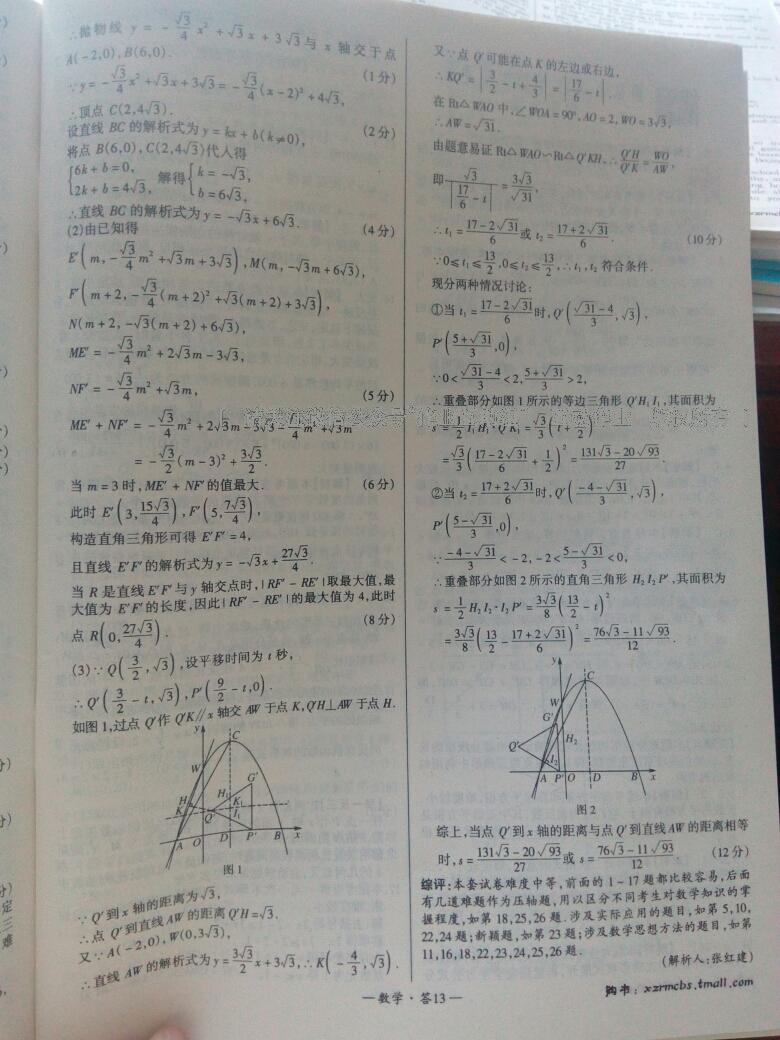 ∴抛物线 y = -√3/4 x² + √3x + 3√3与 x 轴交于点
A(-2,0),B(6,0). (1分)
∵y = -√3/4x² + √3x + 3√3 = -√3/4(x-2)² + 4√3,
∴顶点 C(2,4√3). (2分)
设直线 BC 的解析式为y = kx + b(k≠0),
将点 B(6,0),C(2,4√3)代入得
{6k + b = 0, 2k + b = 4√3, 解得{k = -√3, b = 6√3,
∴直线 BC 的解析式为y = -√3x + 6√3. (4分)
(2)由已知得
E′(m, -√3/4 m² + √3m + 3√3),M(m, -√3m + 6√3),
F′(m+2, -√3/4(m+2)² + √3(m+2) + 3√3),
N(m+2, -√3(m+2) + 6√3),
ME′ = -√3/4 m² + 2√3m - 3√3,
NF′ = -√3/4 m² + √3m, (5分)
ME′ + NF′ = -√3/4 m² + 2√3m - 3√3 - √3/4 m² + √3m
= -√3/2(m-3)² + 3√3/2.
当 m = 3 时,ME′ + NF′的值最大. (6分)
此时 E′(3, 15√3/4),F′(5, 7√3/4),
构造直角三角形可得 E′F′ = 4,
且直线 E′F′的解析式为y = -√3x + 27√3/4.
当 R 是直线 E′F′与 y 轴交点时,|RF′ - RE′|取最大值,最
大值为 E′F′的长度,因此|RF′ - RE′|的最大值为 4,此时
点 R(0, 27√3/4). (8分)
(3)∵Q(3/2, √3),设平移时间为 t 秒,
∴Q′(3/2 - t, √3),P′(9/2 - t, 0).
如图 1,过点 Q′作 Q′K∥x 轴交 AW 于点 K,Q′H⊥AW 于点 H.
y
C
W
G′
H
H₁
K
K₁
Q′
I₁
A
O
D
P′
B
x
图 1
∵Q′到 x 轴的距离为√3,
∴点 Q′到直线 AW 的距离 Q′H = √3.
又∵A(-2,0),W(0,3√3),
∴直线 AW 的解析式为y = 3√3/2 x + 3√3,∴K(-4/3, √3).
又∵点 Q′可能在点 K 的左边或右边,
∴KQ′ = |3/2 - t + 4/3| = |17/6 - t|.
在 Rt△WAO 中,∠WOA = 90°,AO = 2,WO = 3√3,
∴AW = √31.
由题意易证 Rt△WAO∽Rt△Q′KH,∴Q′H/Q′K = WO/AW,
即√3/|17/6 - t| = 3√3/√31,
∴t₁ = (17-2√31)/6或 t₂ = (17+2√31)/6. (10分)
∵0≤t₁≤13/2,0≤t₂≤13/2,∴t₁,t₂ 符合条件.
现分两种情况讨论:
①当 t₁ = (17-2√31)/6时,Q′((√31-4)/3, √3),
P′((5+√31)/3, 0),
∵0 < (√31-4)/3 < 2, (5+√31)/3 > 2,
∴重叠部分如图 1 所示的等边三角形 Q′H₁I₁,其面积为
s = 1/2 I₁H₁·Q′K₁ = √3/3(t + 1/2)²
= √3/3((17-2√31)/6 + 1/2)² = (131√3 - 20√93)/27.
②当 t₂ = (17+2√31)/6时,Q′((-4-√31)/3, √3),
P′((5-√31)/3, 0),
∵(-4-√31)/3 < -2, -2 < (5-√31)/3 < 0,
∴重叠部分如图 2 所示的直角三角形 H₂I₂P′,其面积为
s = 1/2 H₂I₂·I₂P′ = 3√3/8(13/2 - t)²
= 3√3/8(13/2 - (17+2√31)/6)² = (76√3 - 11√93)/12.
y
C
W
G′
Q′
H₂
I₂
A
P′
O
D
B
x
图 2
综上,当点 Q′到 x 轴的距离与点 Q′到直线 AW 的距离相等
时,s = (131√3 - 20√93)/27或 s = (76√3 - 11√93)/12. (12分)
综评:本套试卷难度中等,前面的 1~17 题都比较容易,后面
有几道难题作为压轴题,用以区分不同考生对数学知识的掌
握程度,如第 18,25,26 题.涉及实际应用的题目,如第 5,10,
22,24 题;新颖题,如第 23 题;涉及数学思想方法的题目,如第
11,16,18,22,23,24,25,26 题.
(解析人:张红建)
—数学·答13—
购书:xzrmcbs.tmall.com